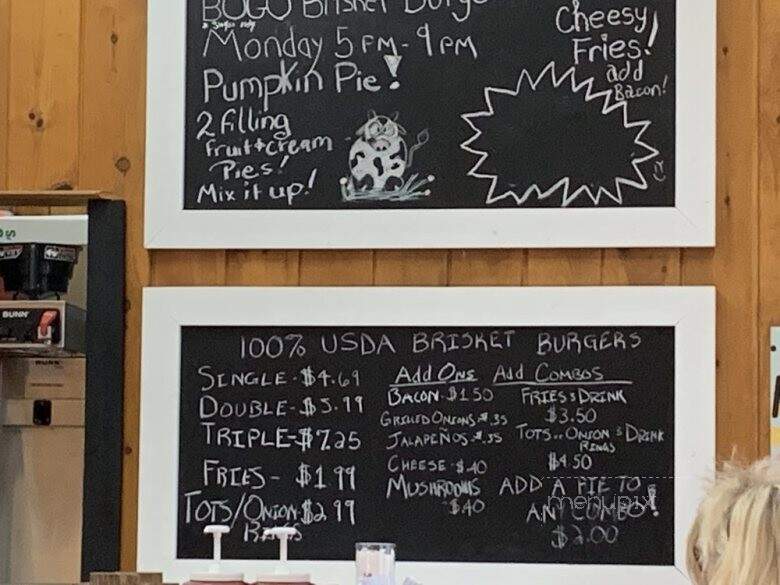 BOGO Brisket Burge
* Singles only
Monday 5 PM - 9 PM
Pumpkin Pie!
2 filling
fruit & cream
Pies!
Mix it up!
Cheesy
Fries!
add
Bacon!
BUNN
BUNN
100% USDA BRISKET BURGERS
SINGLE - $4.69
DOUBLE - $5.99
TRIPLE - $7.25
FRIES - $1.99
TOTS/ONION $2.99
RINGS
Add Ons
BACON - $1.50
GRILLED ONIONS $.35
JALAPEÑOS $.35
CHEESE - $.40
MUSHROOMS
$.40
Add COMBOS
FRIES & DRINK
$3.50
TOTS.. ONION & DRINK
RINGS
$4.50
ADD A PIE TO
ANY COMBO!
$2.00
menupix